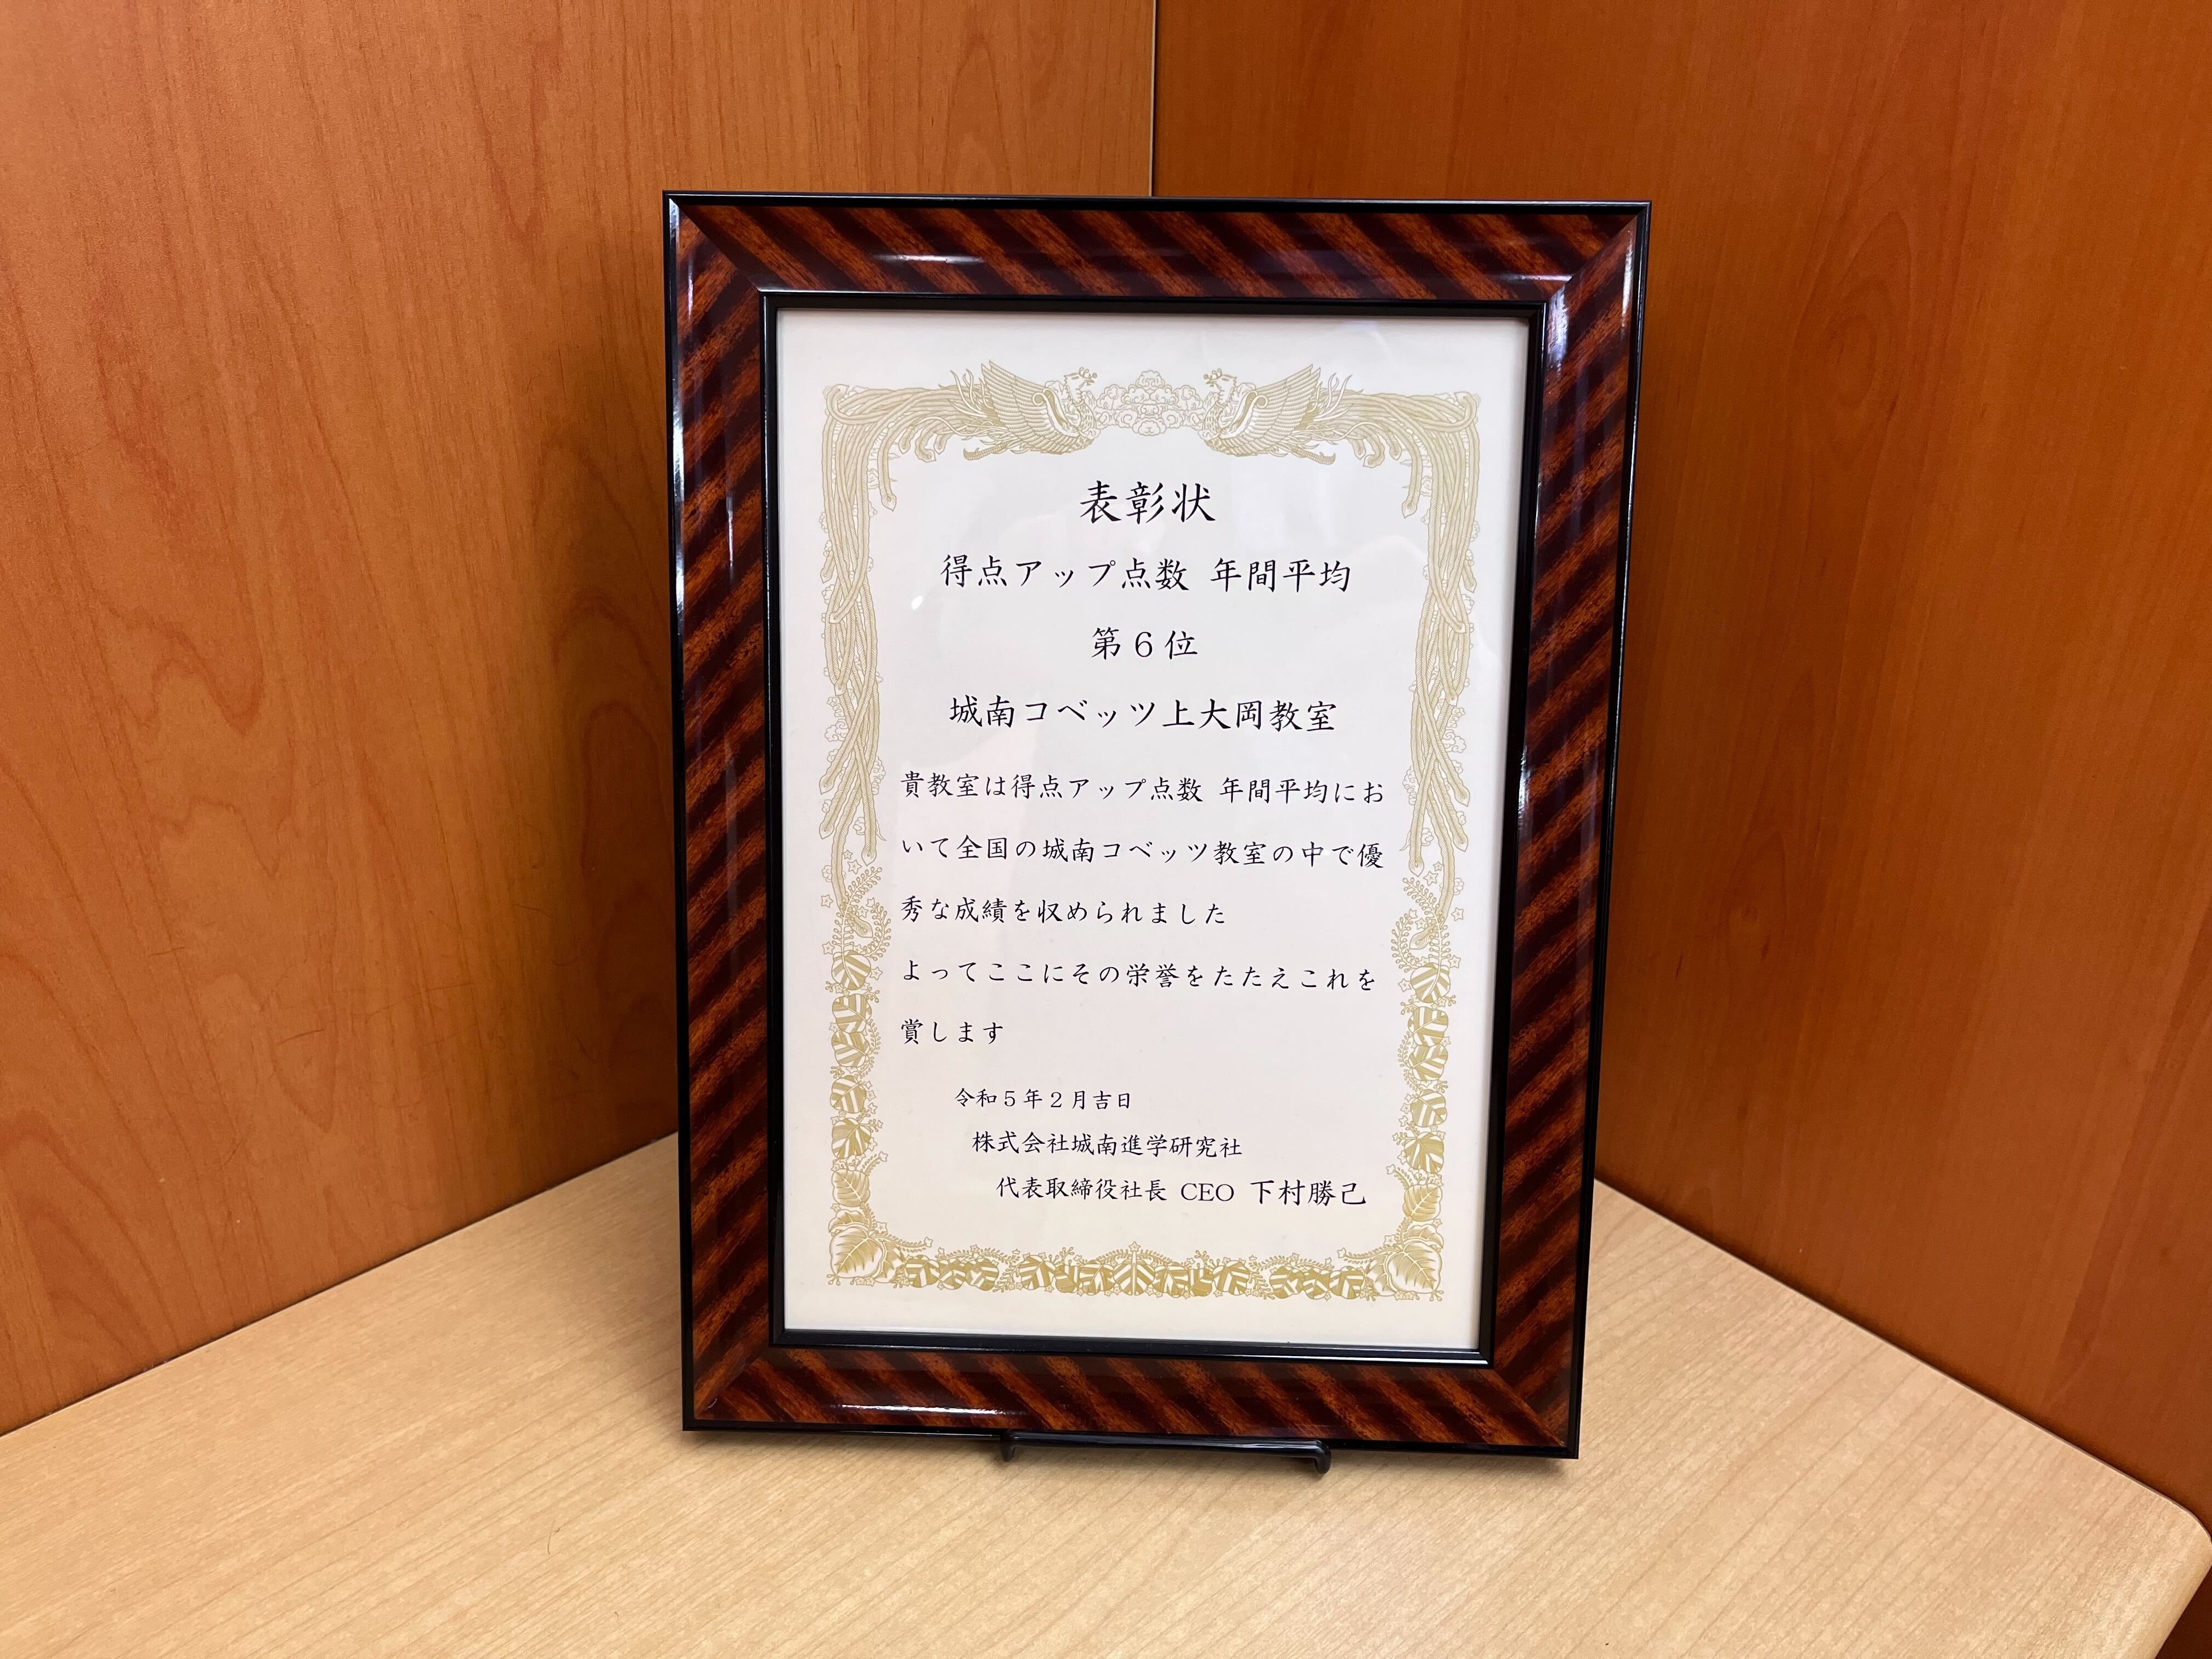 表彰状
得点アップ点数 年間平均
第6位
城南コベッツ上大岡教室
貴教室は得点アップ点数 年間平均にお
いて全国の城南コベッツ教室の中で優
秀な成績を収められました
よってここにその栄誉をたたえこれを
賞します
令和5年2月吉日
株式会社城南進学研究社
代表取締役社長 CEO 下村勝己